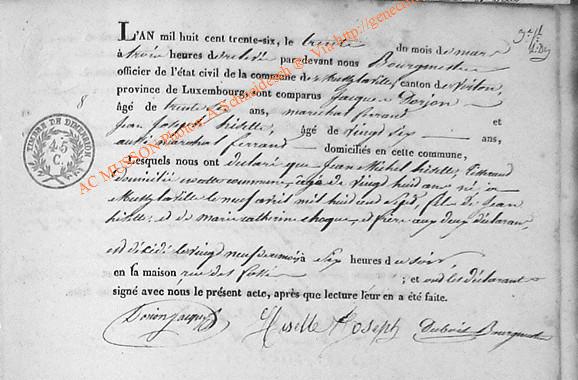 L'AN mil huit cent trente-six, le trente du mois de mars
à trois heures de relevée par devant nous Bourgmestre
officier de l'état civil de la commune de canton de Virton,
province de Luxembourg, sont comparus Jacques Dorjon
8 âgé de trente six ans, maréchal ferrand et
Jean Joseph hiselle, âgé de vingt six ans,
aussi marechal ferrand domiciliés en cette commune,
Lesquels nous ont déclaré que Jean Michel hiselle, tisserand
domicilié en cette commune, âgé de vingt huit ans né à
le neuf avril mil huit cent sept, fils de Jean
hiselle, et de marie catherine et frère aux deux déclarans,
est décédé le vingt neuf de ce mois à six heures du soir,
en sa maison rue des ; et ont les déclarant
signé avec nous le présent acte, après que lecture leur en a été faite.
Dorion jacques Hiselle Joseph
TIMBRE DE DIMENSION
45
C.
AC MUSSON Photos: A. Schaidesch ® Via http://genec